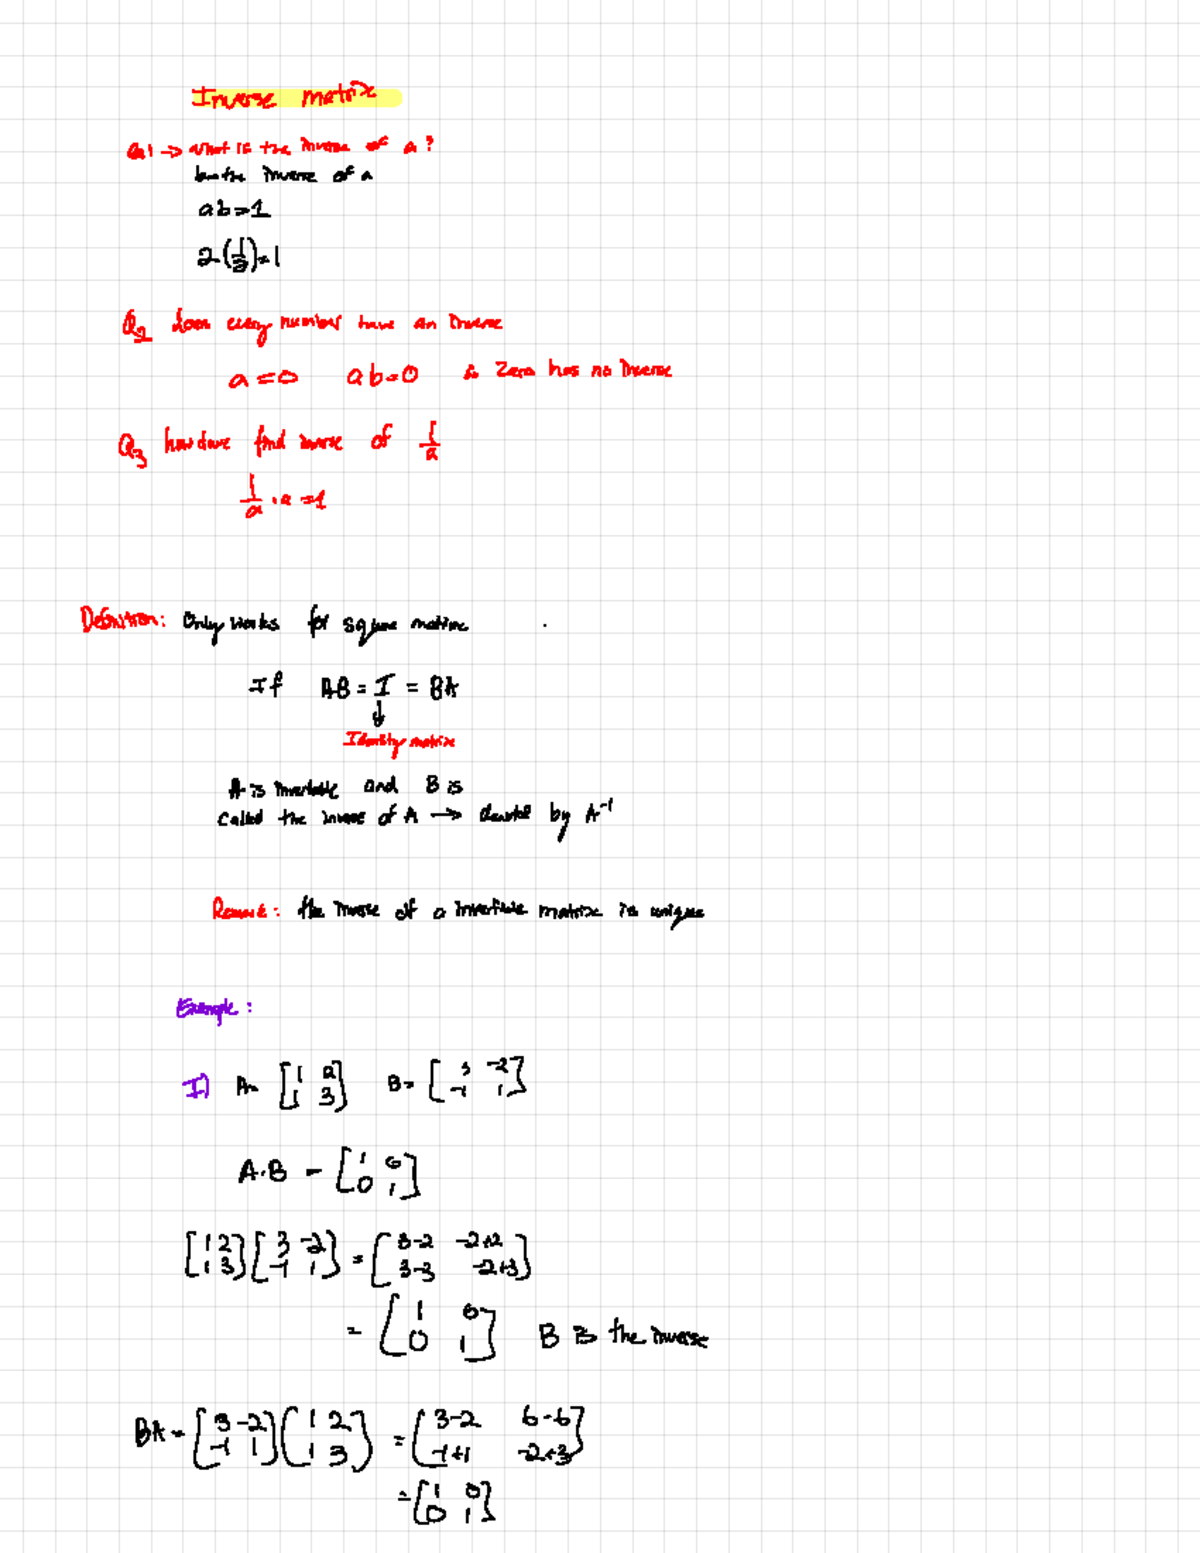 Inverse matrix
Q1 → what is the inverse of a?
b the inverse of a
ab=1
2(1/2)=1
Q2 does every number have an inverse
a=0 ab=0 ∴ Zero has no inverse
Q3 how do we find inverse of 1/a
1/a · a = 1
Definition: Only works for square matrix
If AB = I = BA
↓
Identity matrix
A is invertable and B is
Called the inverse of A → denoted by A⁻¹
Remark: the inverse of a invertible matrix is unique
Example:
I) A= [1 2; 1 3] B= [3 -2; -1 1]
A·B = [1 0; 0 1]
[1 2; 1 3][3 -2; -1 1] = [3-2 -2+2; 3-3 -2+3]
= [1 0; 0 1] B is the inverse
BA = [3 -2; -1 1][1 2; 1 3] = [3-2 6-6; -1+1 -2+3]
= [1 0; 0 1]